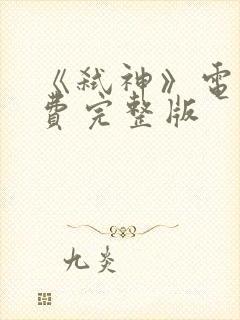 《弑神》電
費完整版
九炎